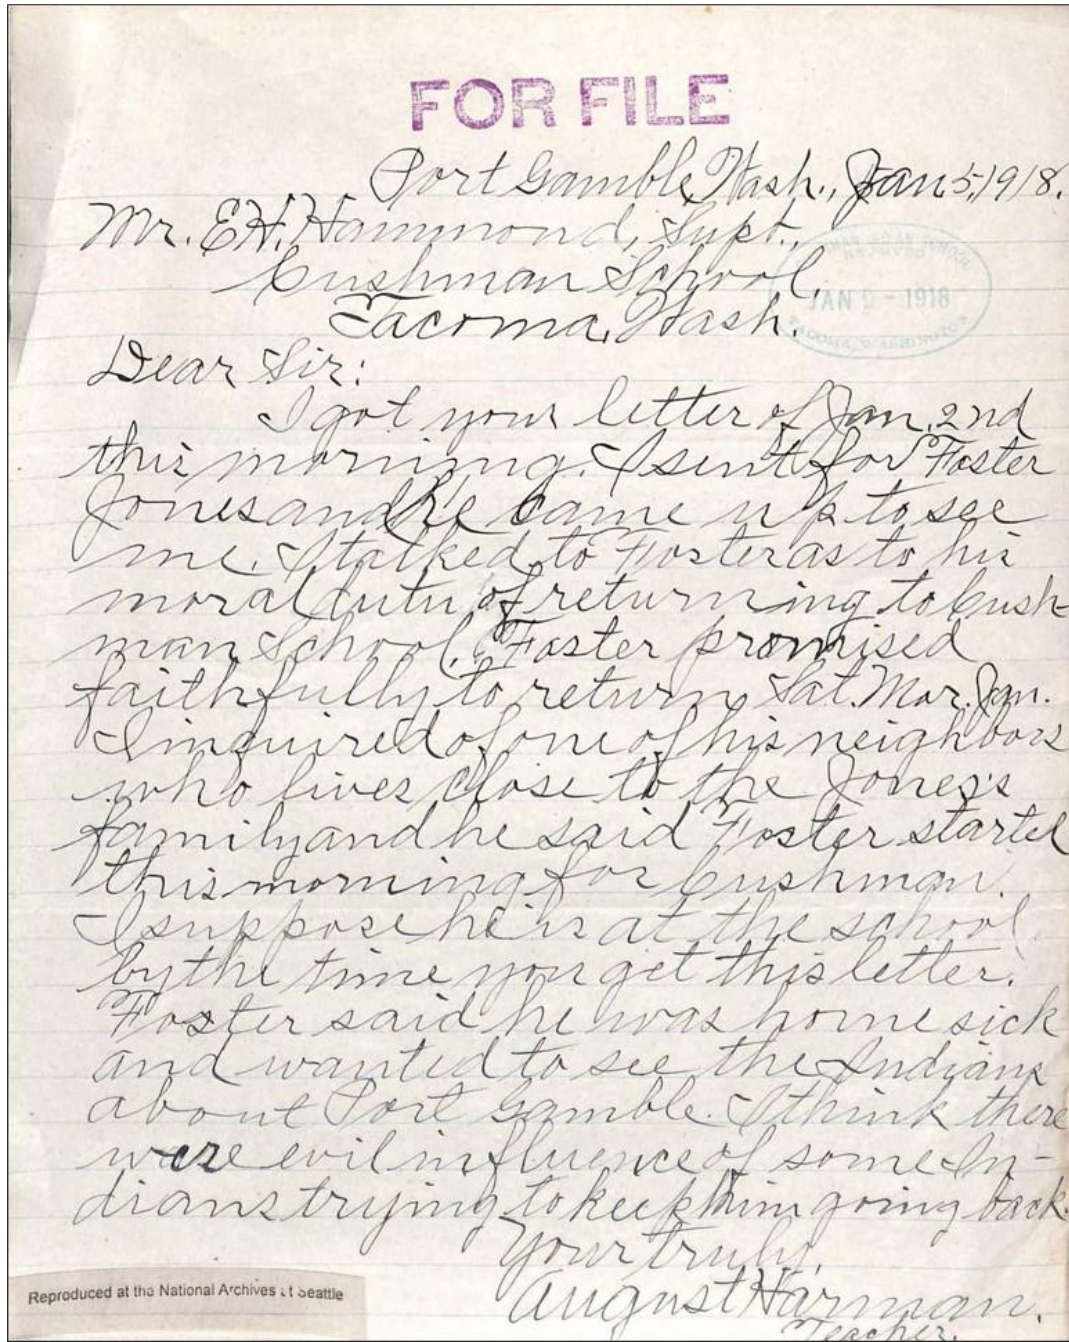 FOR FILE
Port Gamble, Wash., Jan 5, 1918.
Mr. E.H. Hammond, Supt.,
Cushman School,
Tacoma, Wash.
JAN 9 - 1918
TACOMA, WASHINGTON
Dear Sir:
I got your letter of Jan. 2nd
this morning. I sent for Foster
Jones and he came up to see
me. I talked to Foster as to his
moral duty of returning to Cush-
man School. Foster promised
faithfully to return Sat. Mor. Jan.
I inquired of one of his neighbors
who lives close to the Jones's
family and he said Foster started
this morning for Cushman.
I suppose he is at the school
by the time you get this letter.
Foster said he was home sick
and wanted to see the Indians
about Port Gamble. I think there
were evil influence of some In-
dians trying to keep him going back.
Your truly,
August Harman.
Teacher.
Reproduced at the National Archives at Seattle